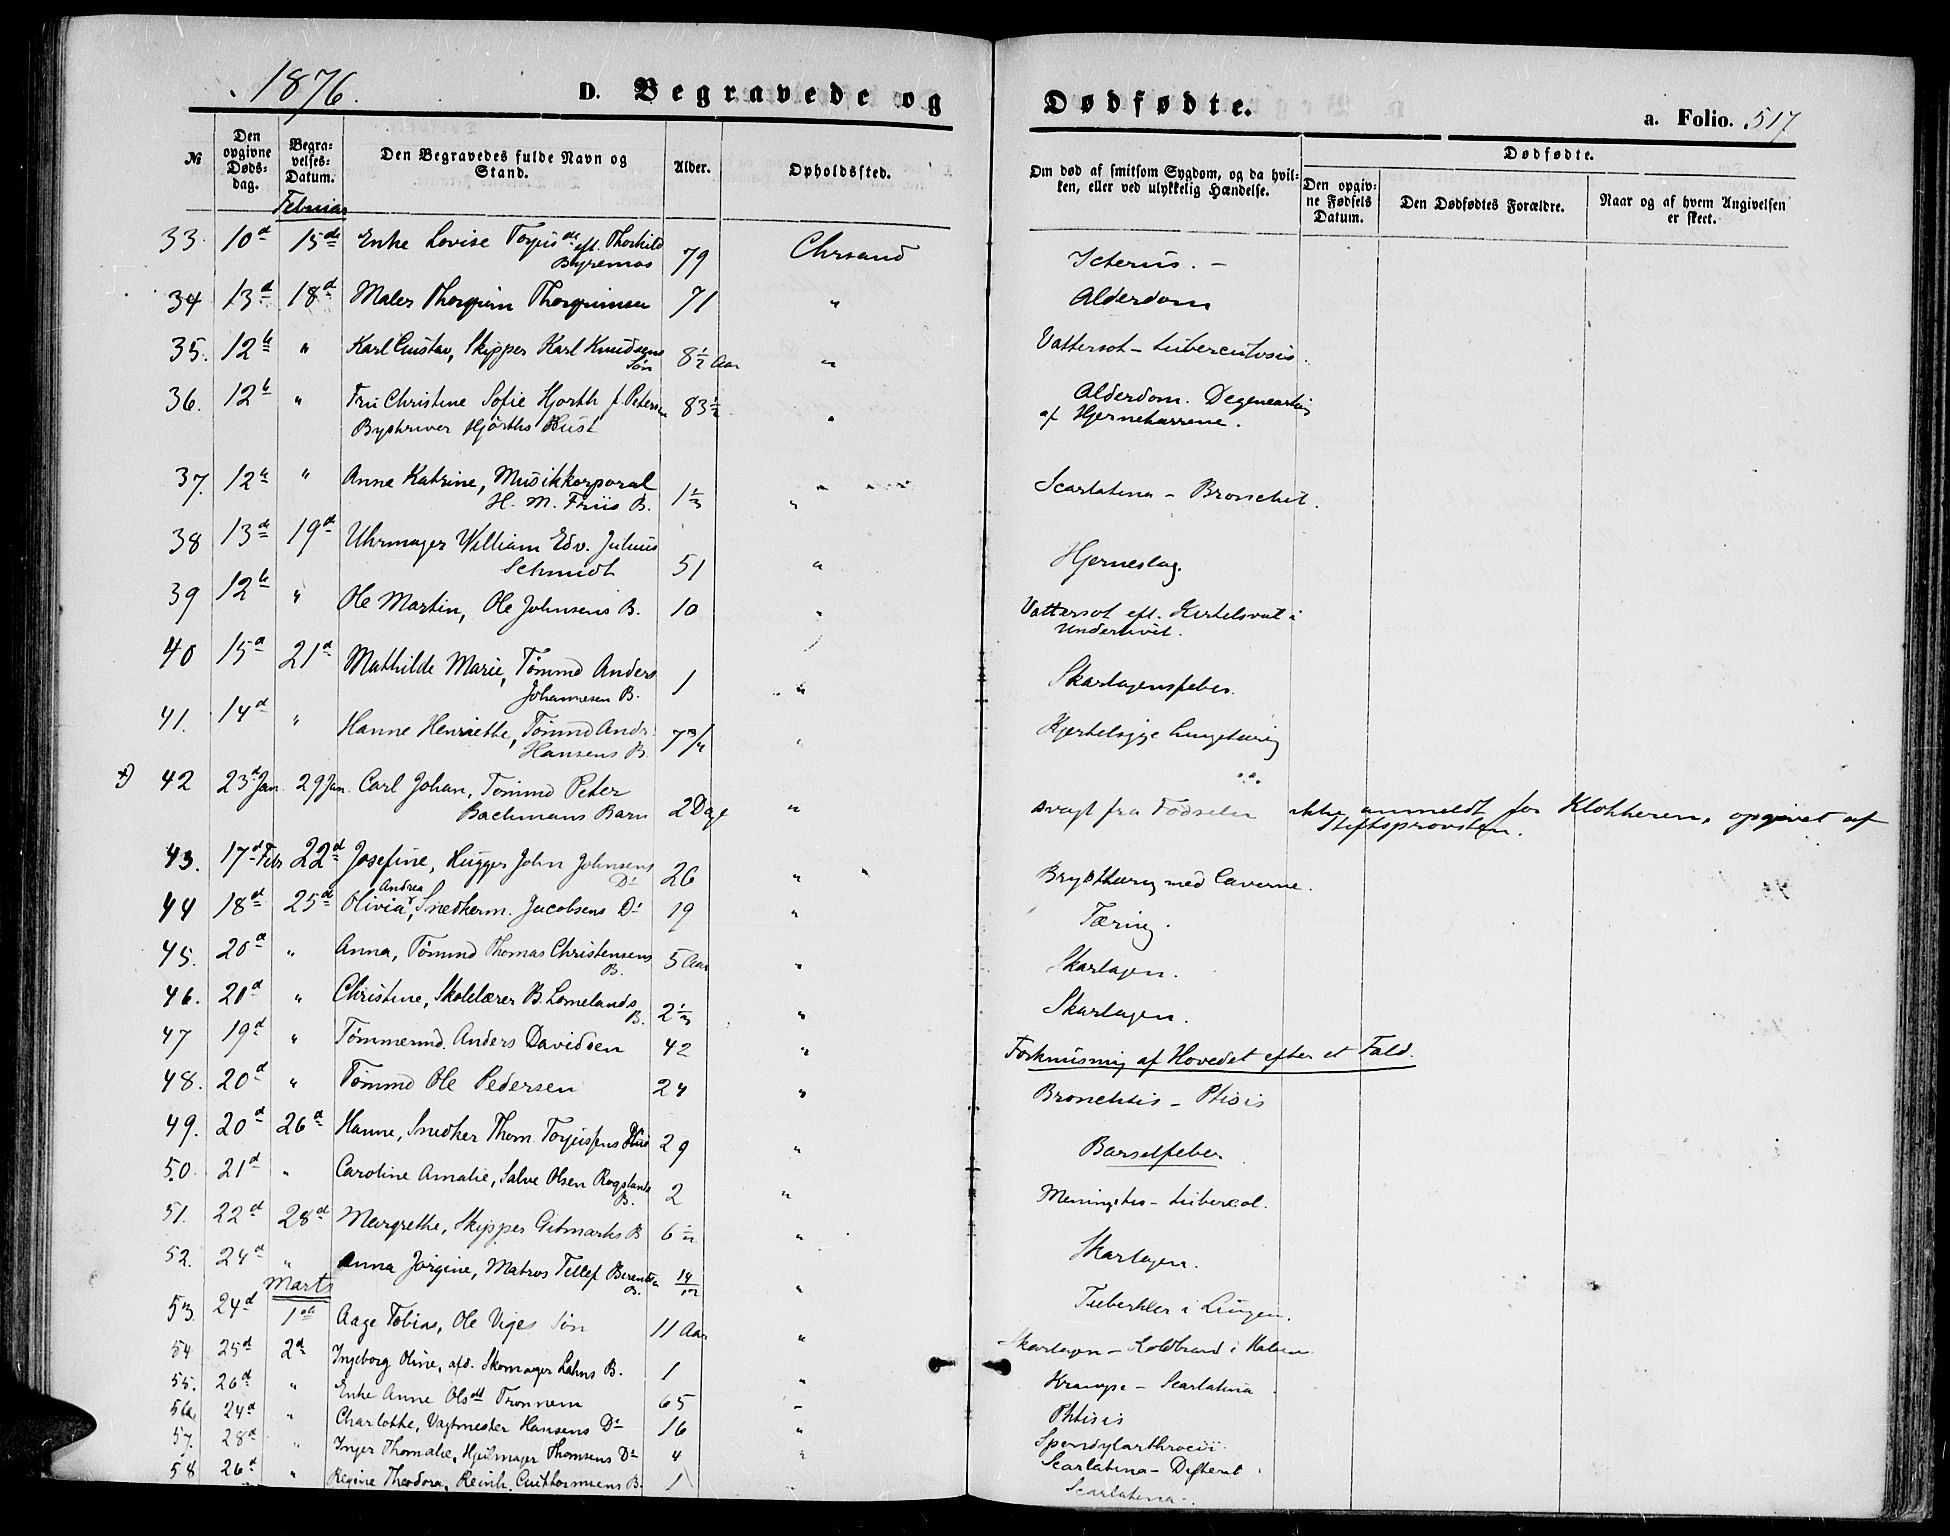 1876.
D. Begravede og Dødfødte.
a. Folio. 517
№
Den opgivne Dødsdag.
Begravelses-Datum.
Den Begravedes fulde Navn og Stand.
Alder.
Opholdssted.
Om død af smitsom Sygdom, og da hvilken, eller ved ulykkelig Hændelse.
Dødfødte.
Den opgivne Fødsels Datum.
Den Dødfødtes Forældre.
Naar og af hvem Angivelsen er skeet.
Februar
33. 10d 15de Enke Lovise Torjusdr eft. Thorkild Byremos 79 Chrsand Icterus. –
34 13d 18d Maler Thorgrim Thorgrimsen 71 " Alderdom
35. 12te " Karl Gustav, Skipper Karl Knudsens Søn 8½ Aar " Vattersot – tuberculosis.
36. 12t " Fru Christine Sofie Hjorth f. Petersen 83½ " Alderdom. Degenearting
Byskriver Hjorths Hust af Hjernekarrene.
37. 12te " Anne Katrine, Musikkorporal H. M. Friis B. 1⅓ " Scarlatina – Bronchit.
38 13de 19d Uhrmager William Edv. Julius Schmidt 51 " Hjerneslag.
39 12te " Ole Martin, Ole Johnsens B. 10 " Vattersot eft. Kirtelsvut i Underlivet.
40 15d 21d Mathilde Marie, Tømmd Anders Johannesen B. 1 " Skarlagensfeber.
41. 14d " Hanne Henriette, Tømmd Andr. Hansens B. 7¾ " Kjertelsyge Lungetæring
x) 42 23d Jan 29 Jan. Carl Johan, Tømmd Peter Bachmans Barn 2 Dage " svagt fra Fødselen ikke anmeldt for Klokkeren, opgivet af Stiftsprovsten.
43. 17d Febr 22d Josefine, Hugger John Johnsens Dr 26 " Brysttæring med Caverne.
44 18d 25de Olivia Andrea, Snedkerm. Jacobsens Dr 19 " Tæring.
45. 20d " Anna, Tømmd Thomas Christensens B. 5 Aar " Skarlagen.
46. 20d " Christine, Skolelærer B. Lomelands B. 2⅓ " Skarlagen.
47 19d " Tømmermd. Anders Davidsen 42 " Forknusning af Hovedet efter et Fald.
48. 20d " Tømmd Ole Pedersen 24 " Bronchitis – Ptisis
49. 20d 26d Hanne, Snedker Thom. Torjussens Hus 29 " Barselfeber
50. 21d " Caroline Amalie, Salve Olsen Rogslands B. 2 " Meningitis – tubercol.
51. 22d 28d Margrethe, Skipper Gitmarks B 6½ " Skarlagen.
52. 24d " Anna Jørgine, Matros Tellef Berents B. 14/12 "
Marts
53. 24d 1ste Aage Tobias, Ole Viges Søn 11 Aar " Tuberkler i Lungen.
54 25d 2d Ingeborg Oline, afd. Skomager Lahns B. 1 Skarlagen – Koldbrand i Halsen
55. 26d " Enke Anne Olsdtt Tronnem 65 " Krampe – Scarlatina.
56. 24d " Charlotte, Vagtmester Hansens Dr 16 " Phtisis
57. 28d " Inger Thomalie, Hjulmager Thomsens Dr 4 "
58 26d " Regine Theodora, Reinh. Gutthormsens B. 1 Scarlatina – Difterit.
Scarlatina.